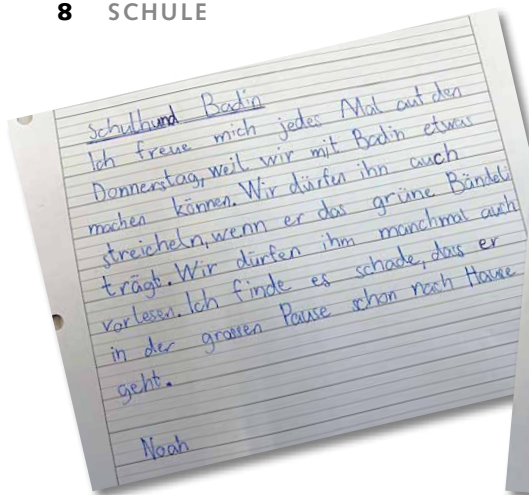 8 SCHULE
Schulhund Badin
Ich freue mich jedes Mal auf den
Donnerstag, weil wir mit Badin etwas
machen können. Wir dürfen ihn auch
streicheln, wenn er das grüne Bändeli
trägt. Wir dürfen ihm manchmal auch
vorlesen. Ich finde es schade, dass er
in der grossen Pause schon nach Hause
geht.
Noah